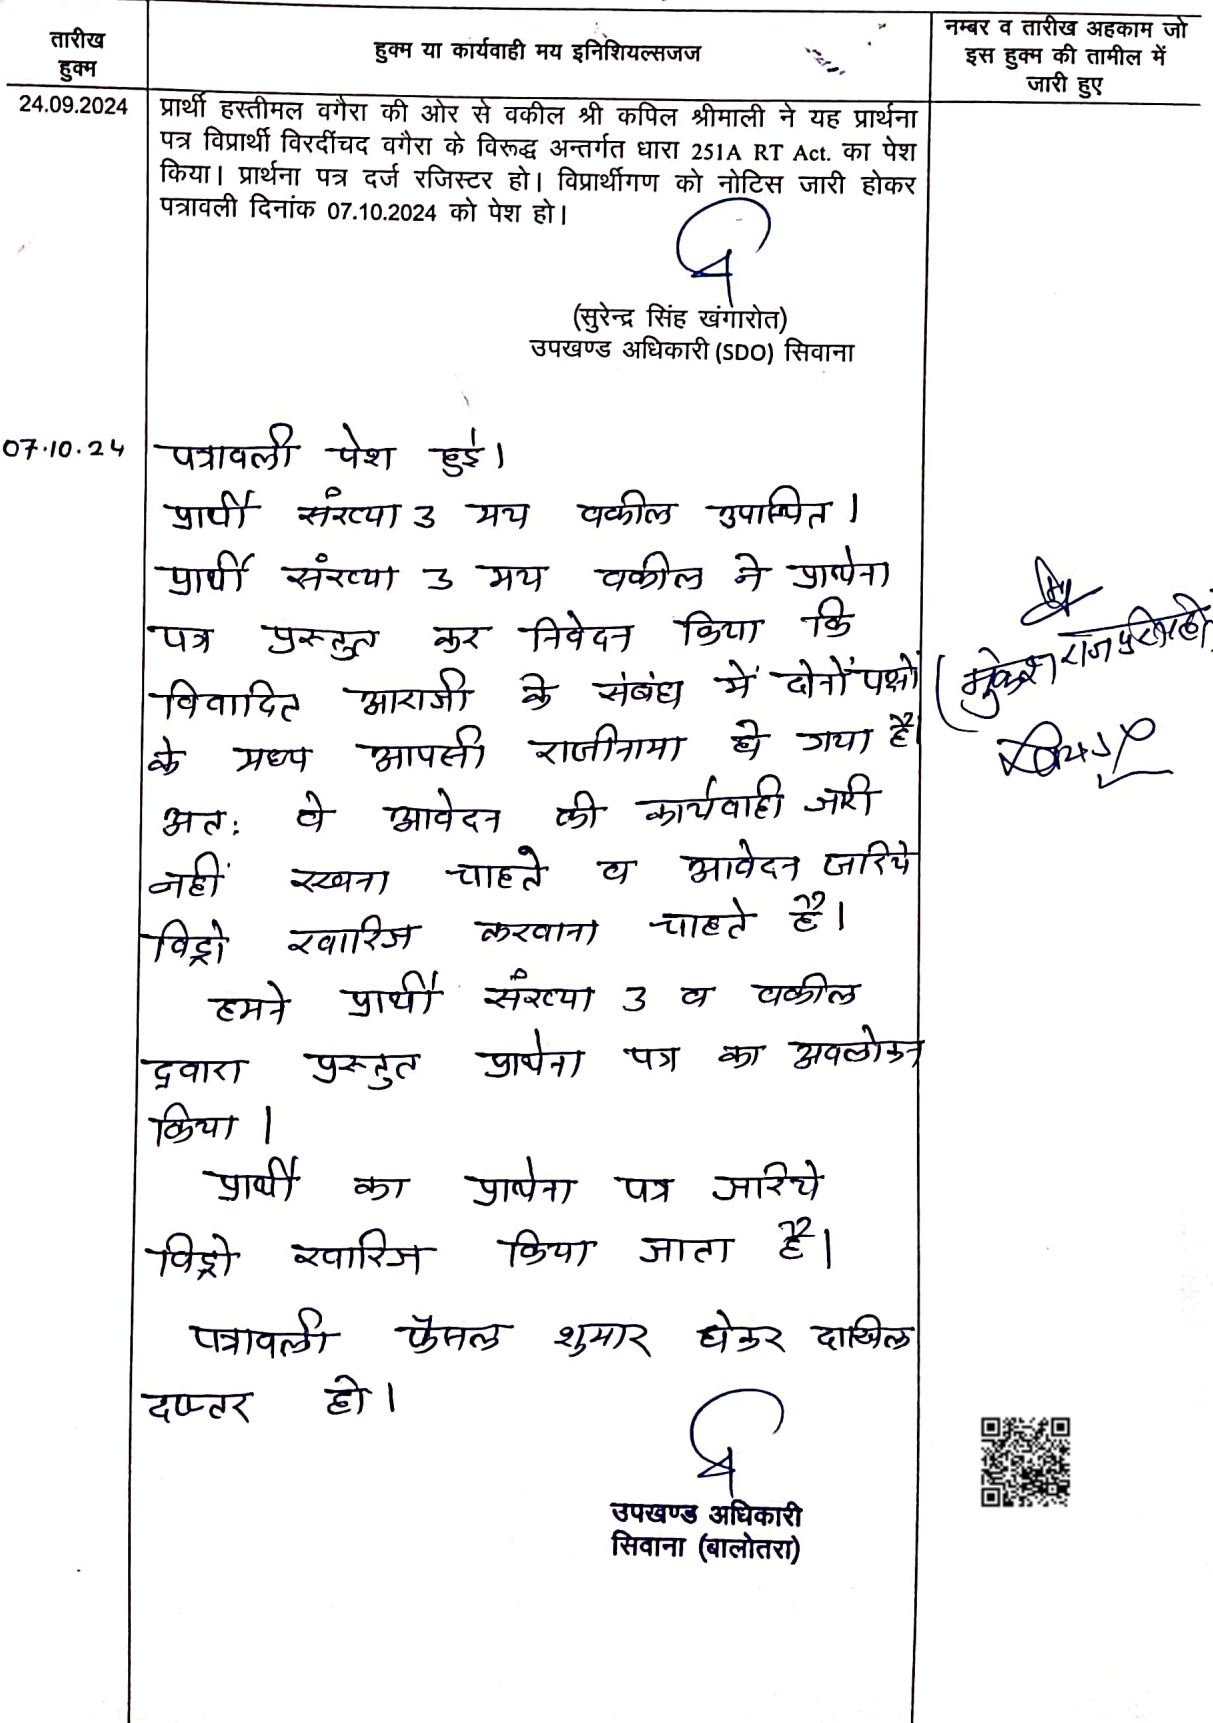 तारीख
हुक्म
हुक्म या कार्यवाही मय इनिशियल्सजज
नम्बर व तारीख अहकाम जो
इस हुक्म की तामील में
जारी हुए
24.09.2024
प्रार्थी हस्तीमल वगैरा की ओर से वकील श्री कपिल श्रीमाली ने यह प्रार्थना
पत्र विप्रार्थी विरदींचद वगैरा के विरूद्ध अन्तर्गत धारा 251A RT Act. का पेश
किया। प्रार्थना पत्र दर्ज रजिस्टर हो। विप्रार्थीगण को नोटिस जारी होकर
पत्रावली दिनांक 07.10.2024 को पेश हो।
(सुरेन्द्र सिंह खंगारोत)
उपखण्ड अधिकारी (SDO) सिवाना
07.10.24
पत्रावली पेश हुई।
प्रार्थी संख्या 3 मय वकील उपास्थित।
प्रार्थी संख्या 3 मय वकील ने प्रार्थना
पत्र प्रस्तुत कर निवेदन किया कि
विवादित आराजी के संबंध में दोनों पक्षों
के मध्य आपसी राजीनामा हो गया है।
अत: वे आवेदन की कार्यवाही जारी
नहीं रखना चाहते व आवेदन जरिये
विड्रो खारिज करवाना चाहते है।
हमने प्रार्थी संख्या 3 व वकील
द्वारा प्रस्तुत प्रार्थना पत्र का अवलोकन
किया।
प्रार्थी का प्रार्थना पत्र जरिये
विड्रो खारिज किया जाता है।
पत्रावली फैसल शुमार होकर दाखिल
दफ्तर हो।
(मुकेश राजपुरोहित)
उपखण्ड अधिकारी
सिवाना (बालोतरा)